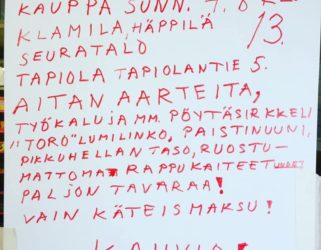 KAUPPA SUNN. 7.8 KLO
KLAMILA, HÄPPILÄ 13.
SEURATALO
TAPIOLA TAPIOLANTIE 5.
AITAN AARTEITA,
TYÖKALUJA MM. PÖYTÄSIRKKELI
"TORO" LUMILINKO, PAISTINUUNI,
PIKKUHELLAN TASO, RUOSTU-
MATTOMAT RAPPUKAITEET UUDET
PALJON TAVARAA!
VAIN KÄTEISMAKSU!